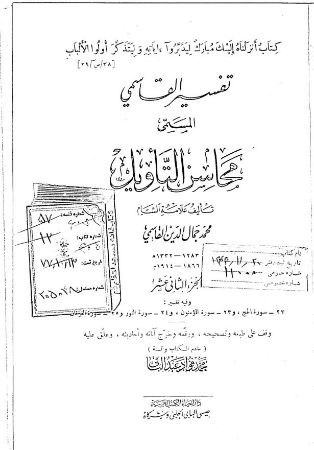 كِتَابٌ أَنزَلْنَاهُ إِلَيْكَ مُبَارَكٌ لِيَدَّبَّرُوا ءَايَاتِهِ وَلِيَتَذَكَّرَ أُولُوا الْأَلْبَابِ
[٣٨/ص/٢٩]
تفسير القاسمي
المسمّى
محاسن التأويل
تأليف علامة الشام
محمد جمال الدين القاسمي
١٢٨٣ – ١٣٣٢ هـ
١٨٦٦ – ١٩١٤ م
الجزء الثاني عشر
وفيه تفسير:
٢٢ – سورة الحج، و٢٣ – سورة المؤمنون، و٢٤ – سورة النور و٢٥ – سورة الفرقان
وقف على طبعه وتصحيحه، ورقمه وخرّج آياته وأحاديثه، وعلق عليه
(خادم الكتاب والسنة)
محمد فؤاد عبد الباقي
دار إحياء الكتب العربية
عيسى البابي الحلبي وشركاه
شماره قفسه: ٥٧
١٢
نام كتاب
شماره عمومى